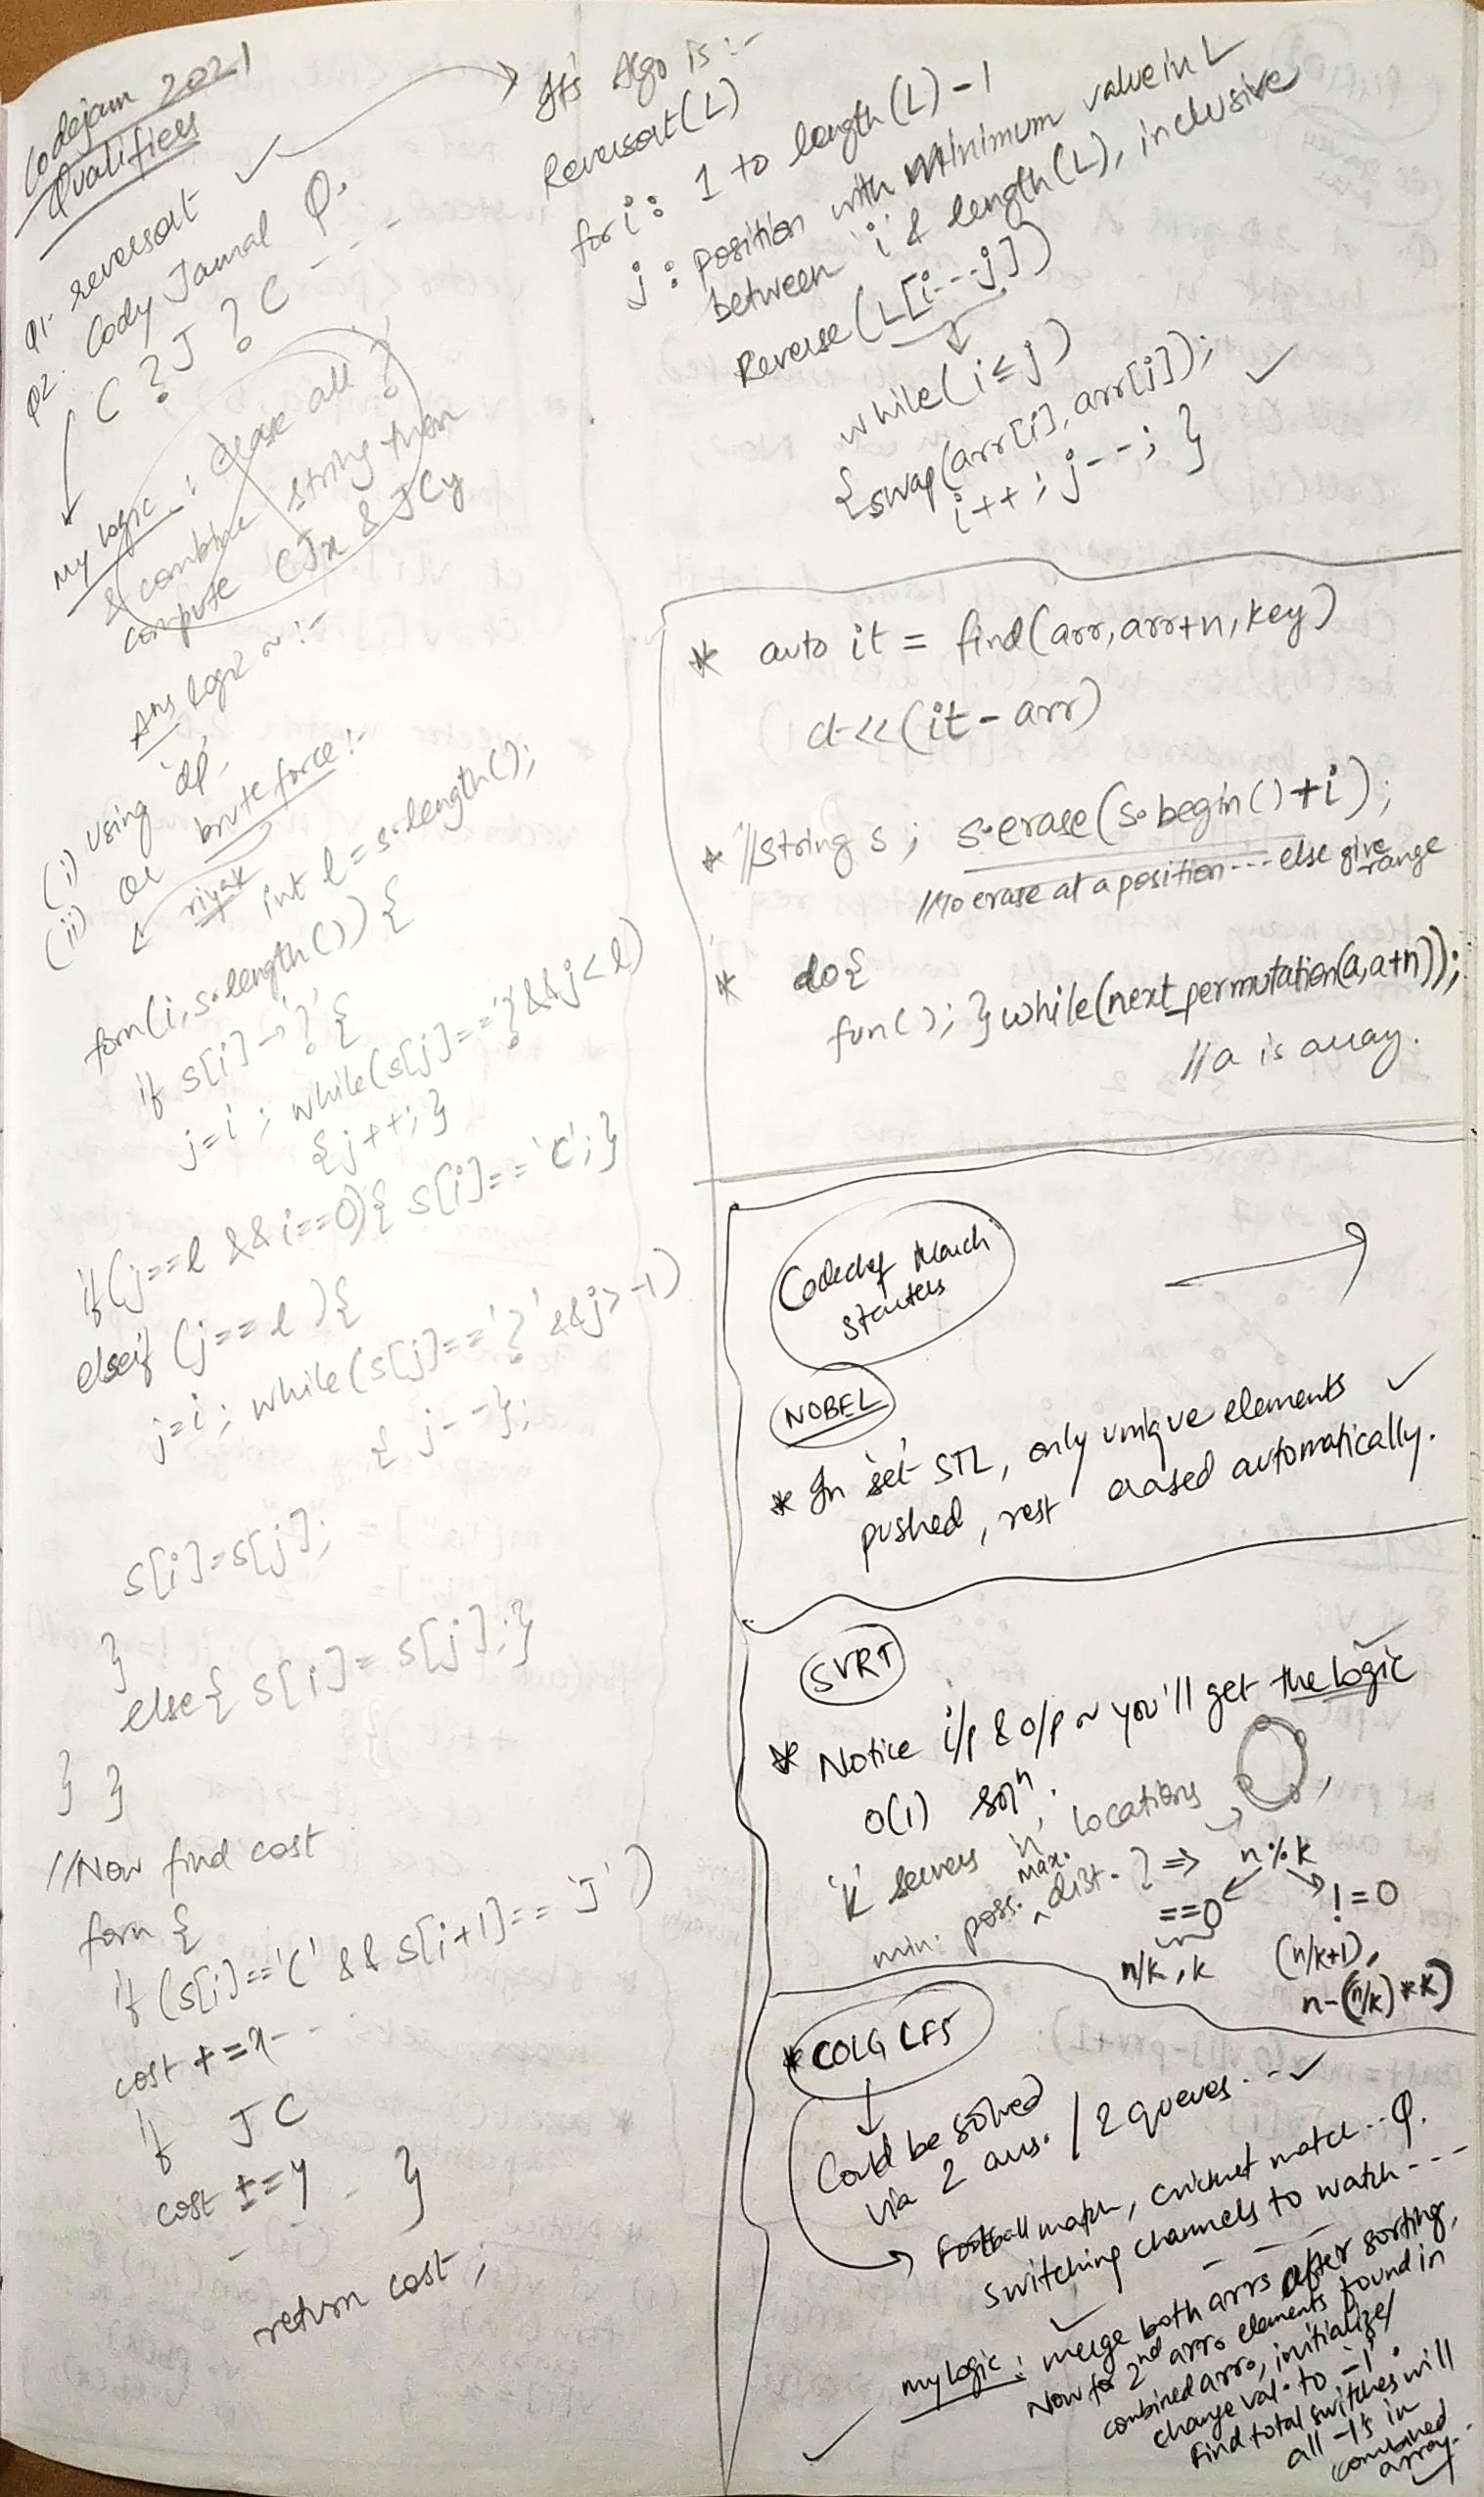 Codejam 2021
Qualifiers
Q1. reversort ✓
Q2. Cody Jamal Q.
C ? J ? C ---
My logic : erase all ?
& combine string then
compute CJx & JCy
Ans logic ~ :-
(i) Using 'dp'
(ii) or brute force :-
int l = s.length();
forn(i, s.length()) {
if s[i] → '?' {
j=i ; while(s[j]=='?' && j<l)
{j++;}
if(j==l && i==0){ s[i]=='C';}
elseif (j==l){
j=i ; while(s[j]=='?' && j>-1)
{ j--};
s[i]=s[j];
}
else{ s[i]= s[j];}
} }
//Now find cost
forn {
if (s[i]=='C' && s[i+1]== 'J')
cost +=x--
if JC
cost +=y - }
return cost ;
It's Algo is :-
Reversort(L)
for i : 1 to length(L)-1
j : position with Minimum value in L
between i & length(L), inclusive
Reverse(L[i---j])
while(i≤j)
{swap(arr[i],arr[j]); ✓
i++; j--; }
* auto it = find(arr,arr+n,key)
ct<<(it-arr)
* //string s ; s.erase(s.begin()+i);
//to erase at a position --- else give range
* do{
fun(); }while(next_permutation(a,a+n));
//a is array.
Codechef March
starters
NOBEL
* In set STL, only unique elements ✓
pushed, rest erased automatically.
SVRT
* Notice i/p & o/p ~ you'll get the logic
O(1) solⁿ.
'k' servers 'n' locations ,
min. poss. max. dist. ? => n%k
==0 !=0
n/k , k (n/k+1),
n-(n/k)*k)
* COLG LFS
Could be solved
via 2 arrs. / 2 queues --- ✓
Football match, cricket match -- Q.
switching channels to watch ---
my logic : merge both arrs after sorting,
Now for 2nd arr. elements found in
combined arr., initialize/
change val. to '-1'.
Find total switches will
all -1's in
combined
array.